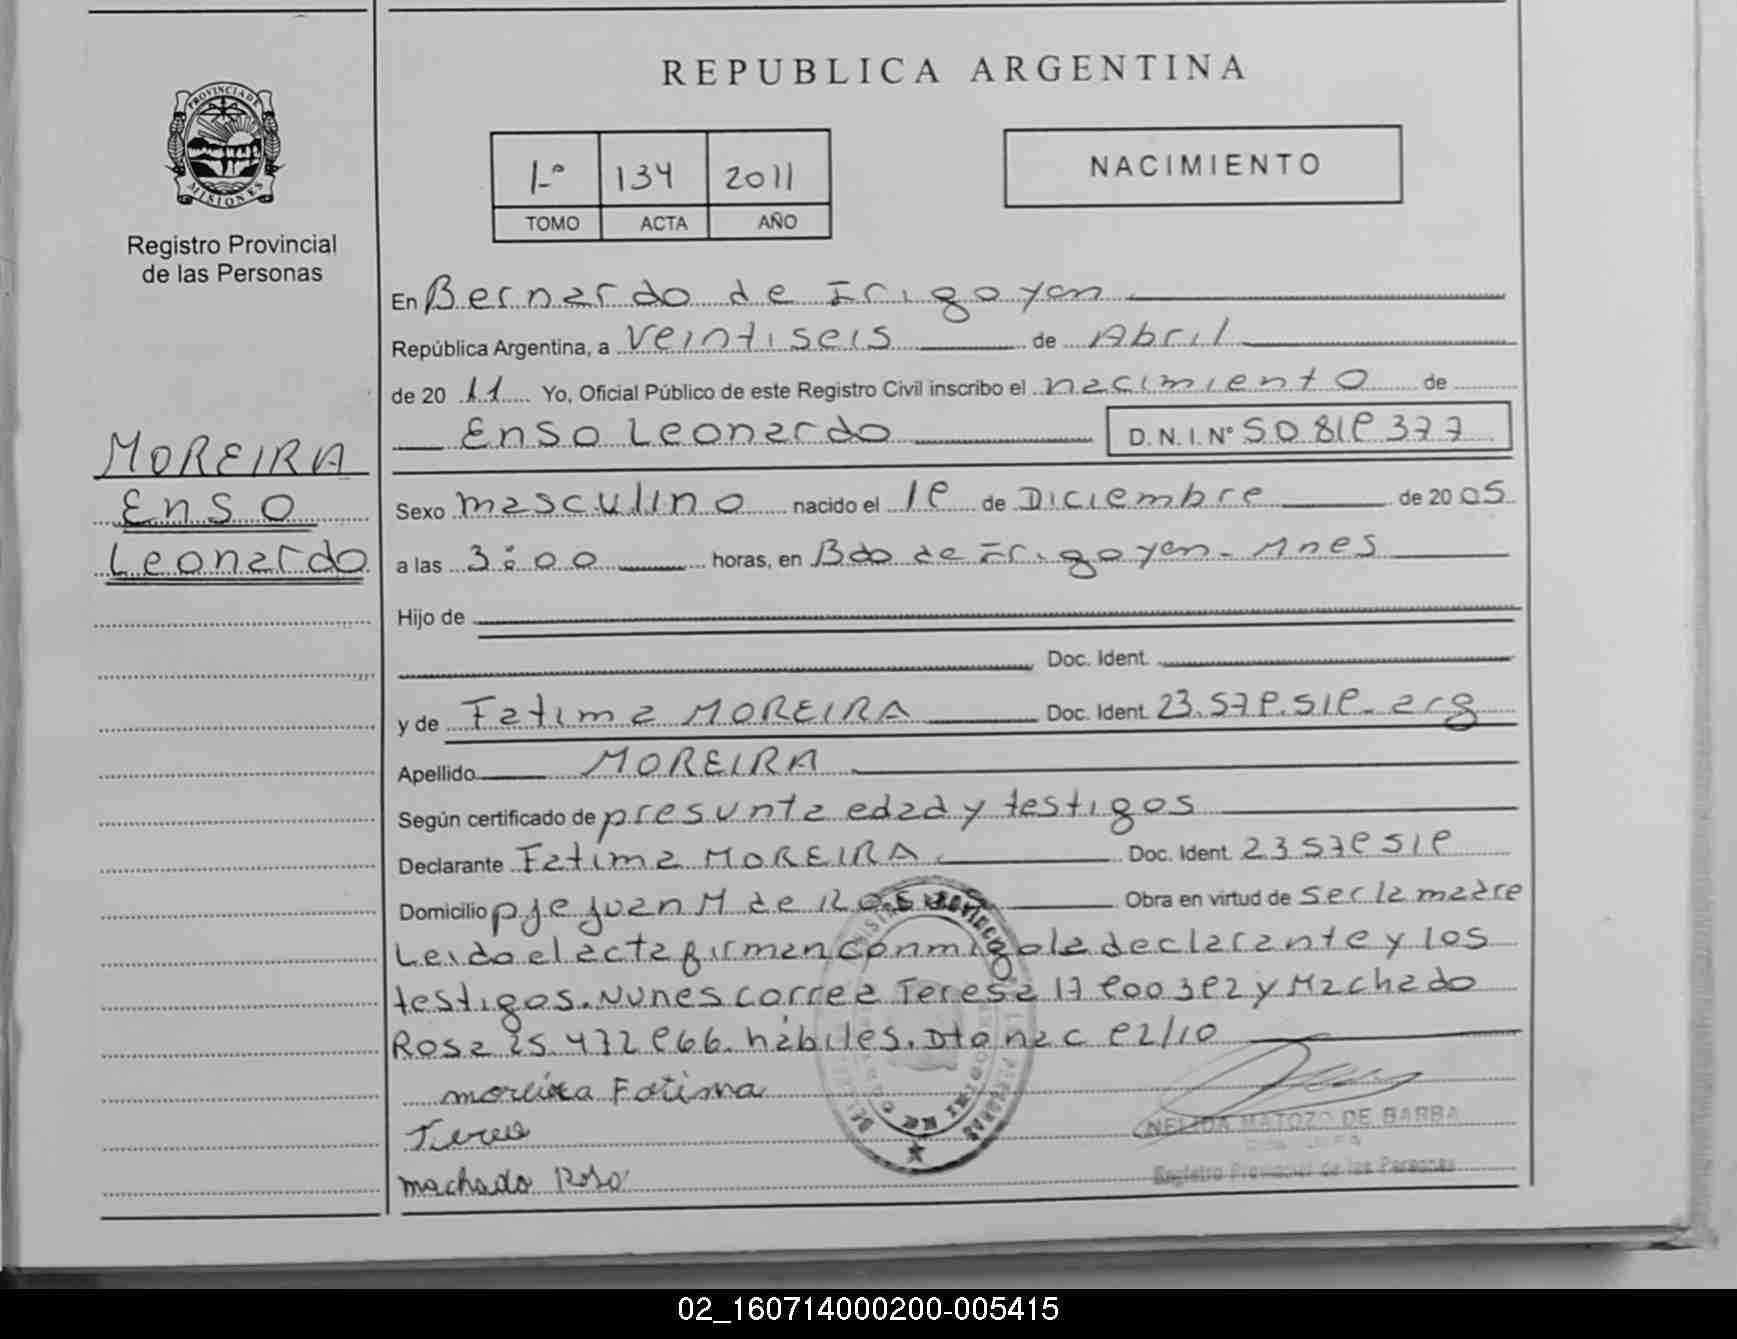 REPUBLICA ARGENTINA
PROVINCIA DE
MISIONES
Registro Provincial
de las Personas
1º 134 2011
TOMO ACTA AÑO
NACIMIENTO
En Bernardo de Irigoyen
República Argentina, a veintiseis de Abril
de 20 11 Yo, Oficial Público de este Registro Civil inscribo el nacimiento de
Enso Leonardo D.N.I. Nº 50 819 377
MOREIRA
Enso
Leonardo
Sexo masculino nacido el 19 de Diciembre de 20 05
a las 3:00 horas, en Bdo de Irigoyen - Mnes
Hijo de
Doc. Ident.
y de Fatima MOREIRA Doc. Ident. 23.579.519. arg
Apellido MOREIRA
Según certificado de presunta edad y testigos
Declarante Fatima MOREIRA Doc. Ident. 23579519
Domicilio pje Juan M de Obra en virtud de ser la madre
Leido el acta firman conmigo la declarante y los
testigos. Nunes correa Teresa 17 900 392 y Machado
Rosa 25.472 966. hábiles. Dto nac 92/10
moreira Fatima
machado Rosa
NELIDA MATOZO DE BARBA
Registro Provincial de las Personas
02_160714000200-005415